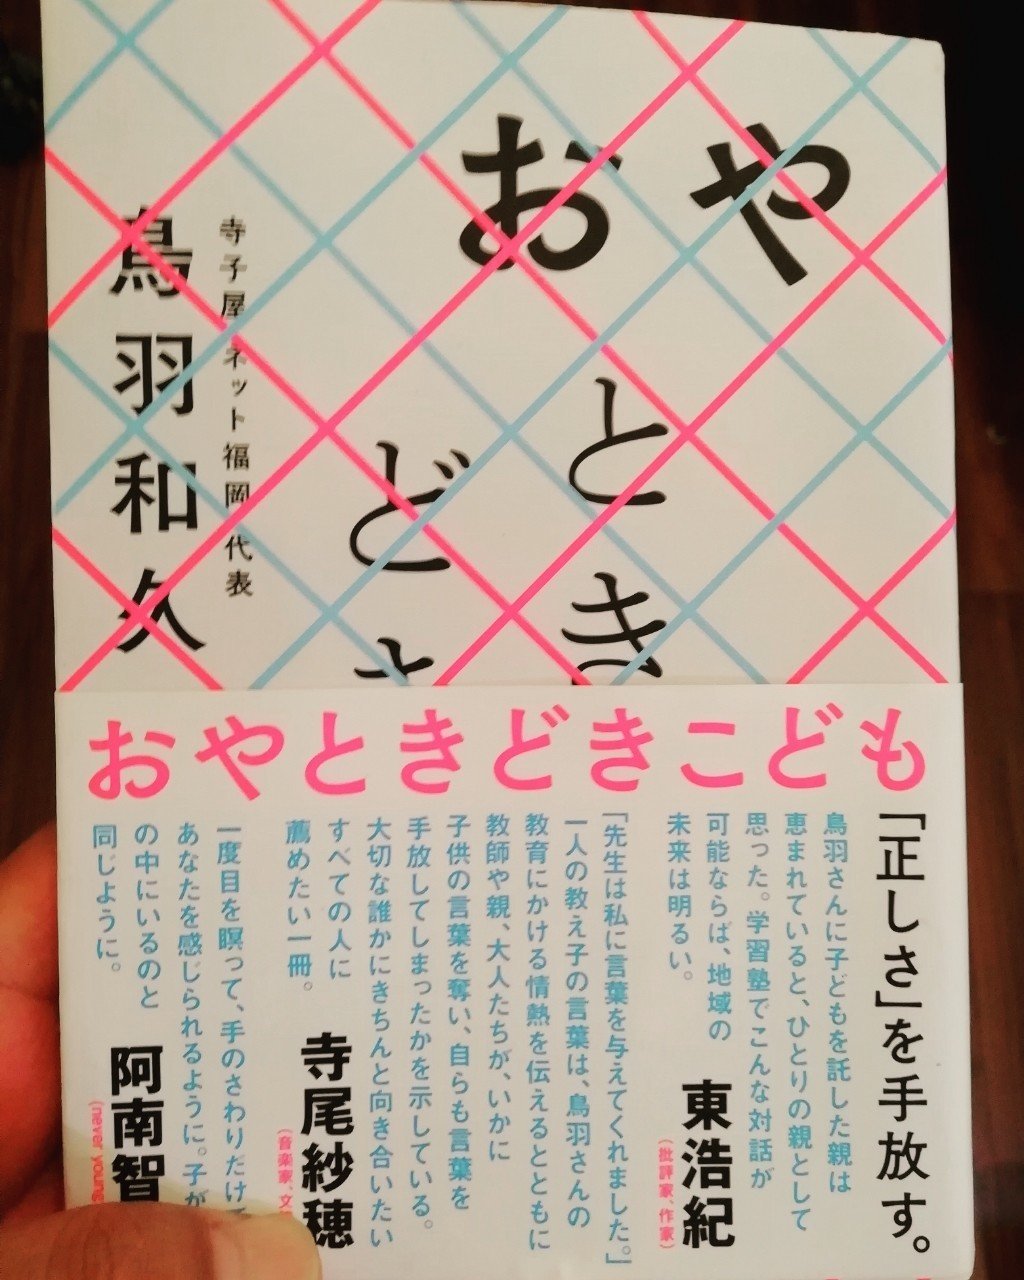 おや
とき
どき
寺子屋ネット福岡代表
鳥羽和久
おやときどきこども
「正しさ」を手放す。
鳥羽さんに子どもを託した親は
恵まれていると、ひとりの親として
思った。学習塾でこんな対話が
可能ならば、地域の
未来は明るい。
東浩紀
（批評家、作家）
「先生は私に言葉を与えてくれました。」
一人の教え子の言葉は、鳥羽さんの
教育にかける情熱を伝えるとともに
教師や親、大人たちが、いかに
子供の言葉を奪い、自らも言葉を
手放してしまったかを示している。
大切な誰かにきちんと向き合いたい
すべての人に
薦めたい一冊。
寺尾紗穂
（音楽家、文
一度目を瞑って、手のさわりだけで
あなたを感じられるように。子が
の中にいるのと
同じように。
阿南智
（never young